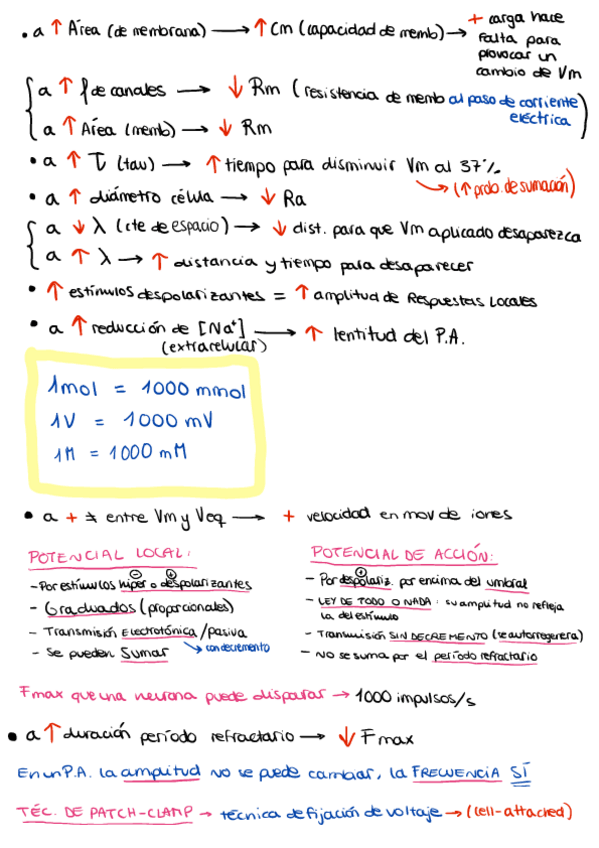 • a ↑ Área (de membrana) → ↑ Cm (capacidad de memb) → + carga hace
falta para
provocar un
cambio de Vm
a ↑ ſ de canales → ↓ Rm (resistencia de memb al paso de corriente
eléctrica)
a ↑ Área (memb) → ↓ Rm
• a ↑ τ (tau) → ↑ tiempo para disminuir Vm al 37%
→ (↑ prob. de sumación)
• a ↑ diámetro célula → ↓ Ra
a ↓ λ (cte de espacio) → ↓ dist. para que Vm aplicado desaparezca
a ↑ λ → ↑ distancia y tiempo para desaparecer
• ↑ estímulos despolarizantes = ↑ amplitud de Respuestas locales
• a ↑ reducción de [Na⁺] → ↑ lentitud del P.A.
(extracelular)
1mol = 1000 mmol
1V = 1000 mV
1M = 1000 mM
• a + ≠ entre Vm y Veq → + velocidad en mov de iones
POTENCIAL LOCAL:
- Por estímulos hiper ⊖ o despolarizantes ⊕
- Graduados (proporcionales)
- Transmisión Electrotónica / pasiva
→ con decremento
- Se pueden Sumar
POTENCIAL DE ACCIÓN:
- Por despolariz. ⊕ por encima del umbral
- LEY DE TODO O NADA: su amplitud no refleja
la del estímulo
- Transmisión SIN DECREMENTO (se autorregenera)
- NO se suma por el período refractario
Fmax que una neurona puede disparar → 1000 impulsos/s
• a ↑ duración período refractario → ↓ Fmax
En un P.A. la amplitud no se puede cambiar, la FRECUENCIA SÍ
TÉC. DE PATCH-CLAMP → técnica de fijación de voltaje → (cell-attached)